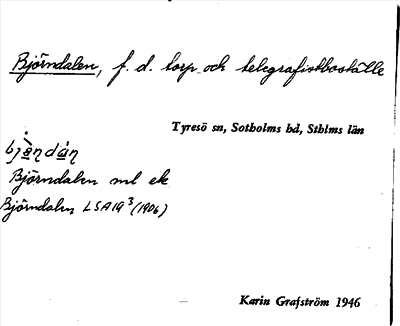 Björndalen, f. d. torp och telegrafistboställe
Tyresö sn, Sotholms hd, Sthlms län
Björndalen ml ek
Björndalen LSA19³ (1906)
Karin Grafström 1946